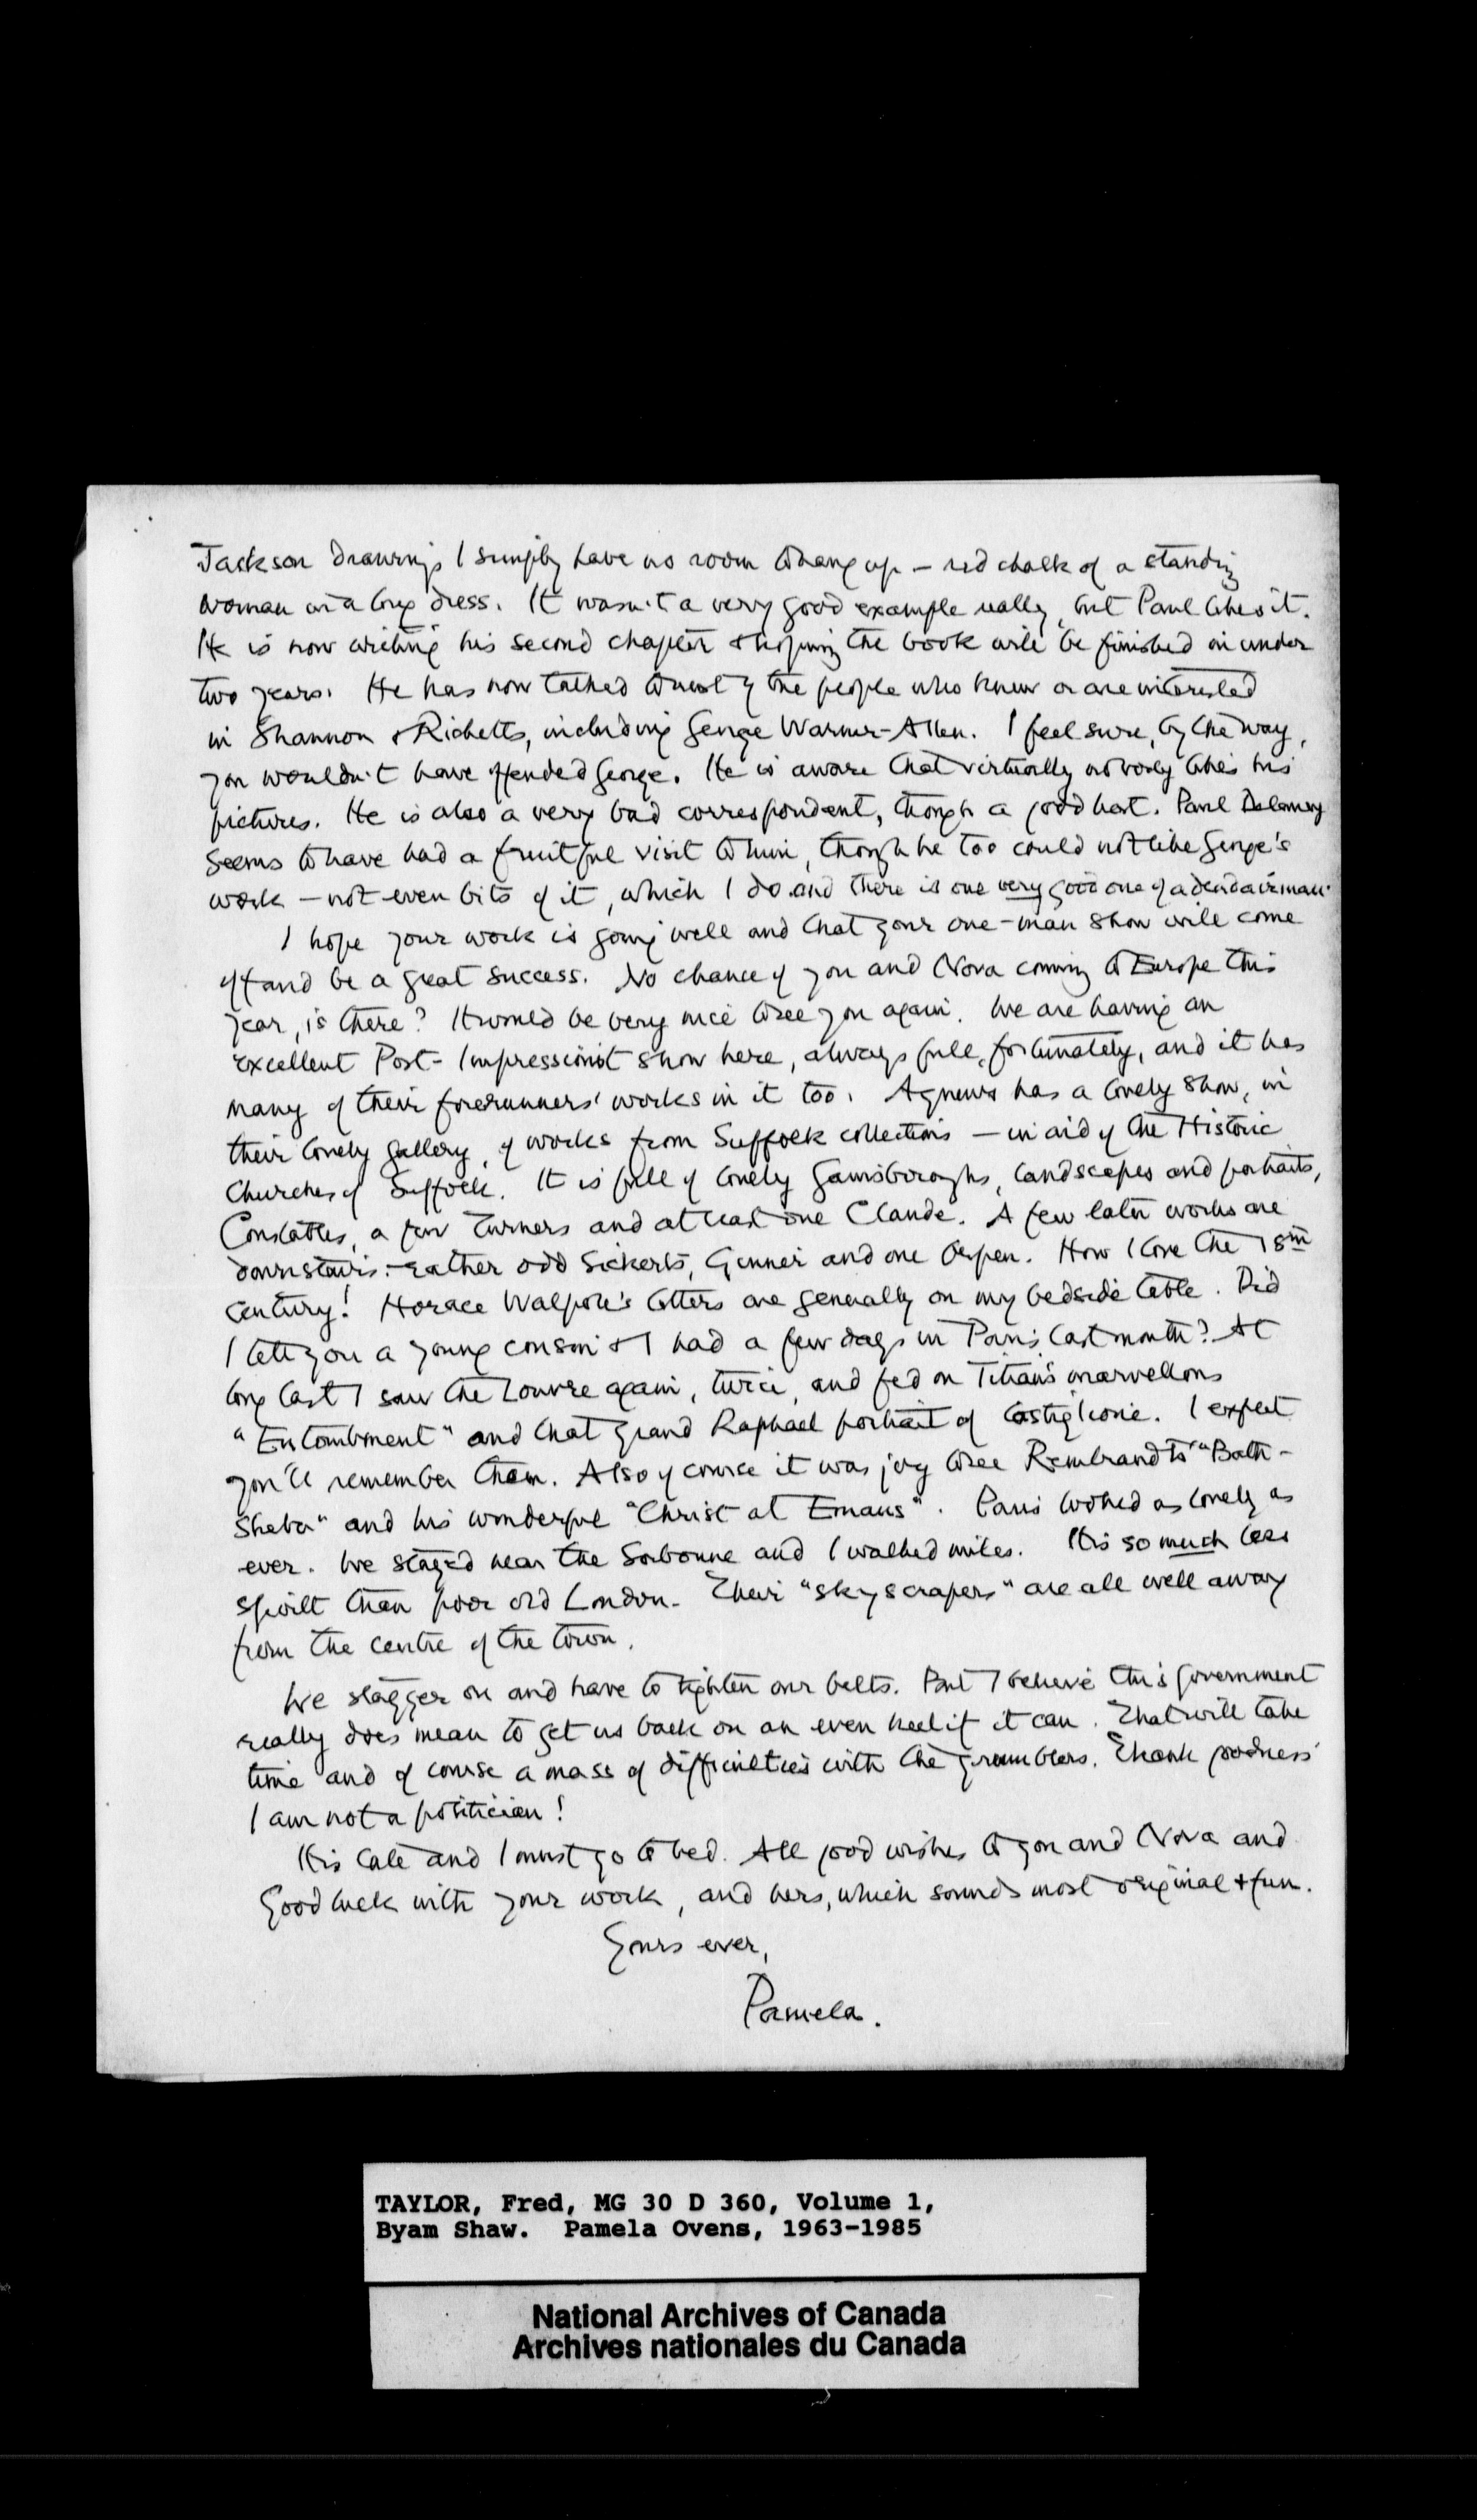 Jackson drawings I simply have no room to hang up – red chalk of a standing
woman in a long dress. It wasn't a very good example really, but Paul likes it.
He is now writing his second chapter & hoping the book will be finished in under
two years. He has now talked to most of the people who knew or are interested
in Shannon & Ricketts, including George Warner-Allen. I feel sure, by the way,
you wouldn't have offended George. He is aware that virtually nobody likes his
pictures. He is also a very bad correspondent, though a good host. Paul Delaney
seems to have had a fruitful visit to him, though he too could not like George's
work – not even bits of it, which I do and there is one very good one of a dead airman.
I hope your work is going well and that your one-man show will come
off and be a great success. No chance of you and Nova coming to Europe this
year, is there? It would be very nice to see you again. We are having an
excellent Post-Impressionist show here, always full, fortunately, and it has
many of their forerunners' works in it too. Agnews has a lovely show, in
their lovely gallery, of works from Suffolk collections – in aid of the Historic
Churches of Suffolk. It is full of lovely Gainsboroughs, landscapes and portraits,
Constables, a few Turners and at least one Claude. A few later works are
downstairs:- rather odd Sickerts, Ginner and one Orpen. How I love the 18th
century! Horace Walpole's letters are generally on my bedside table. Did
I tell you a young cousin & I had a few days in Paris, last month? At
long last I saw the Louvre again, twice, and fed on Titian's marvellous
"Entombment" and that grand Raphael portrait of Castiglione. I expect
you'll remember them. Also of course it was joy to see Rembrandt's "Bath-
Sheba" and his wonderful "Christ at Emaus". Paris looked as lovely as
ever. We stayed near the Sorbonne and I walked miles. It is so much less
spoilt than poor old London. Their "skyscrapers" are all well away
from the centre of the town.
We stagger on and have to tighten our belts. But I believe this government
really does mean to get us back on an even keel if it can. That will take
time and of course a mass of difficulties with the grumblers. Thank goodness
I am not a politician!
It is late and I must go to bed. All good wishes to you and Nova and
Good luck with your work, and hers, which sounds most original & fun.
Yours ever,
Pamela.
TAYLOR, Fred, MG 30 D 360, Volume 1,
Byam Shaw. Pamela Ovens, 1963-1985
National Archives of Canada
Archives nationales du Canada